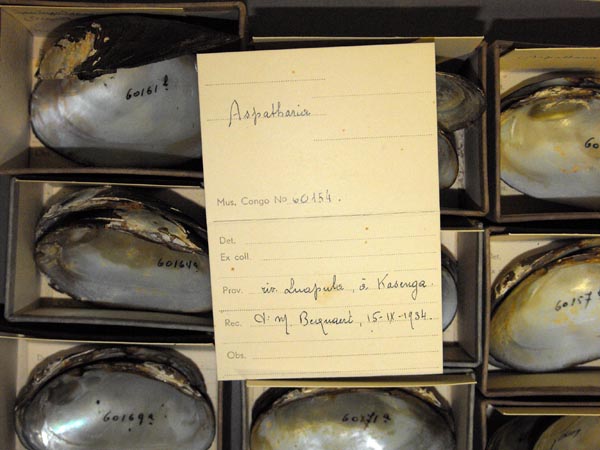 Aspatharia
Mus. Congo No 60154.
Det.
Ex coll.
Prov. riv. Luapula, à Kasenga.
Rec. Dr M. Becquaert, 15-IX-1934.
Obs.
60161a
60164a
60169a
60171a
60157